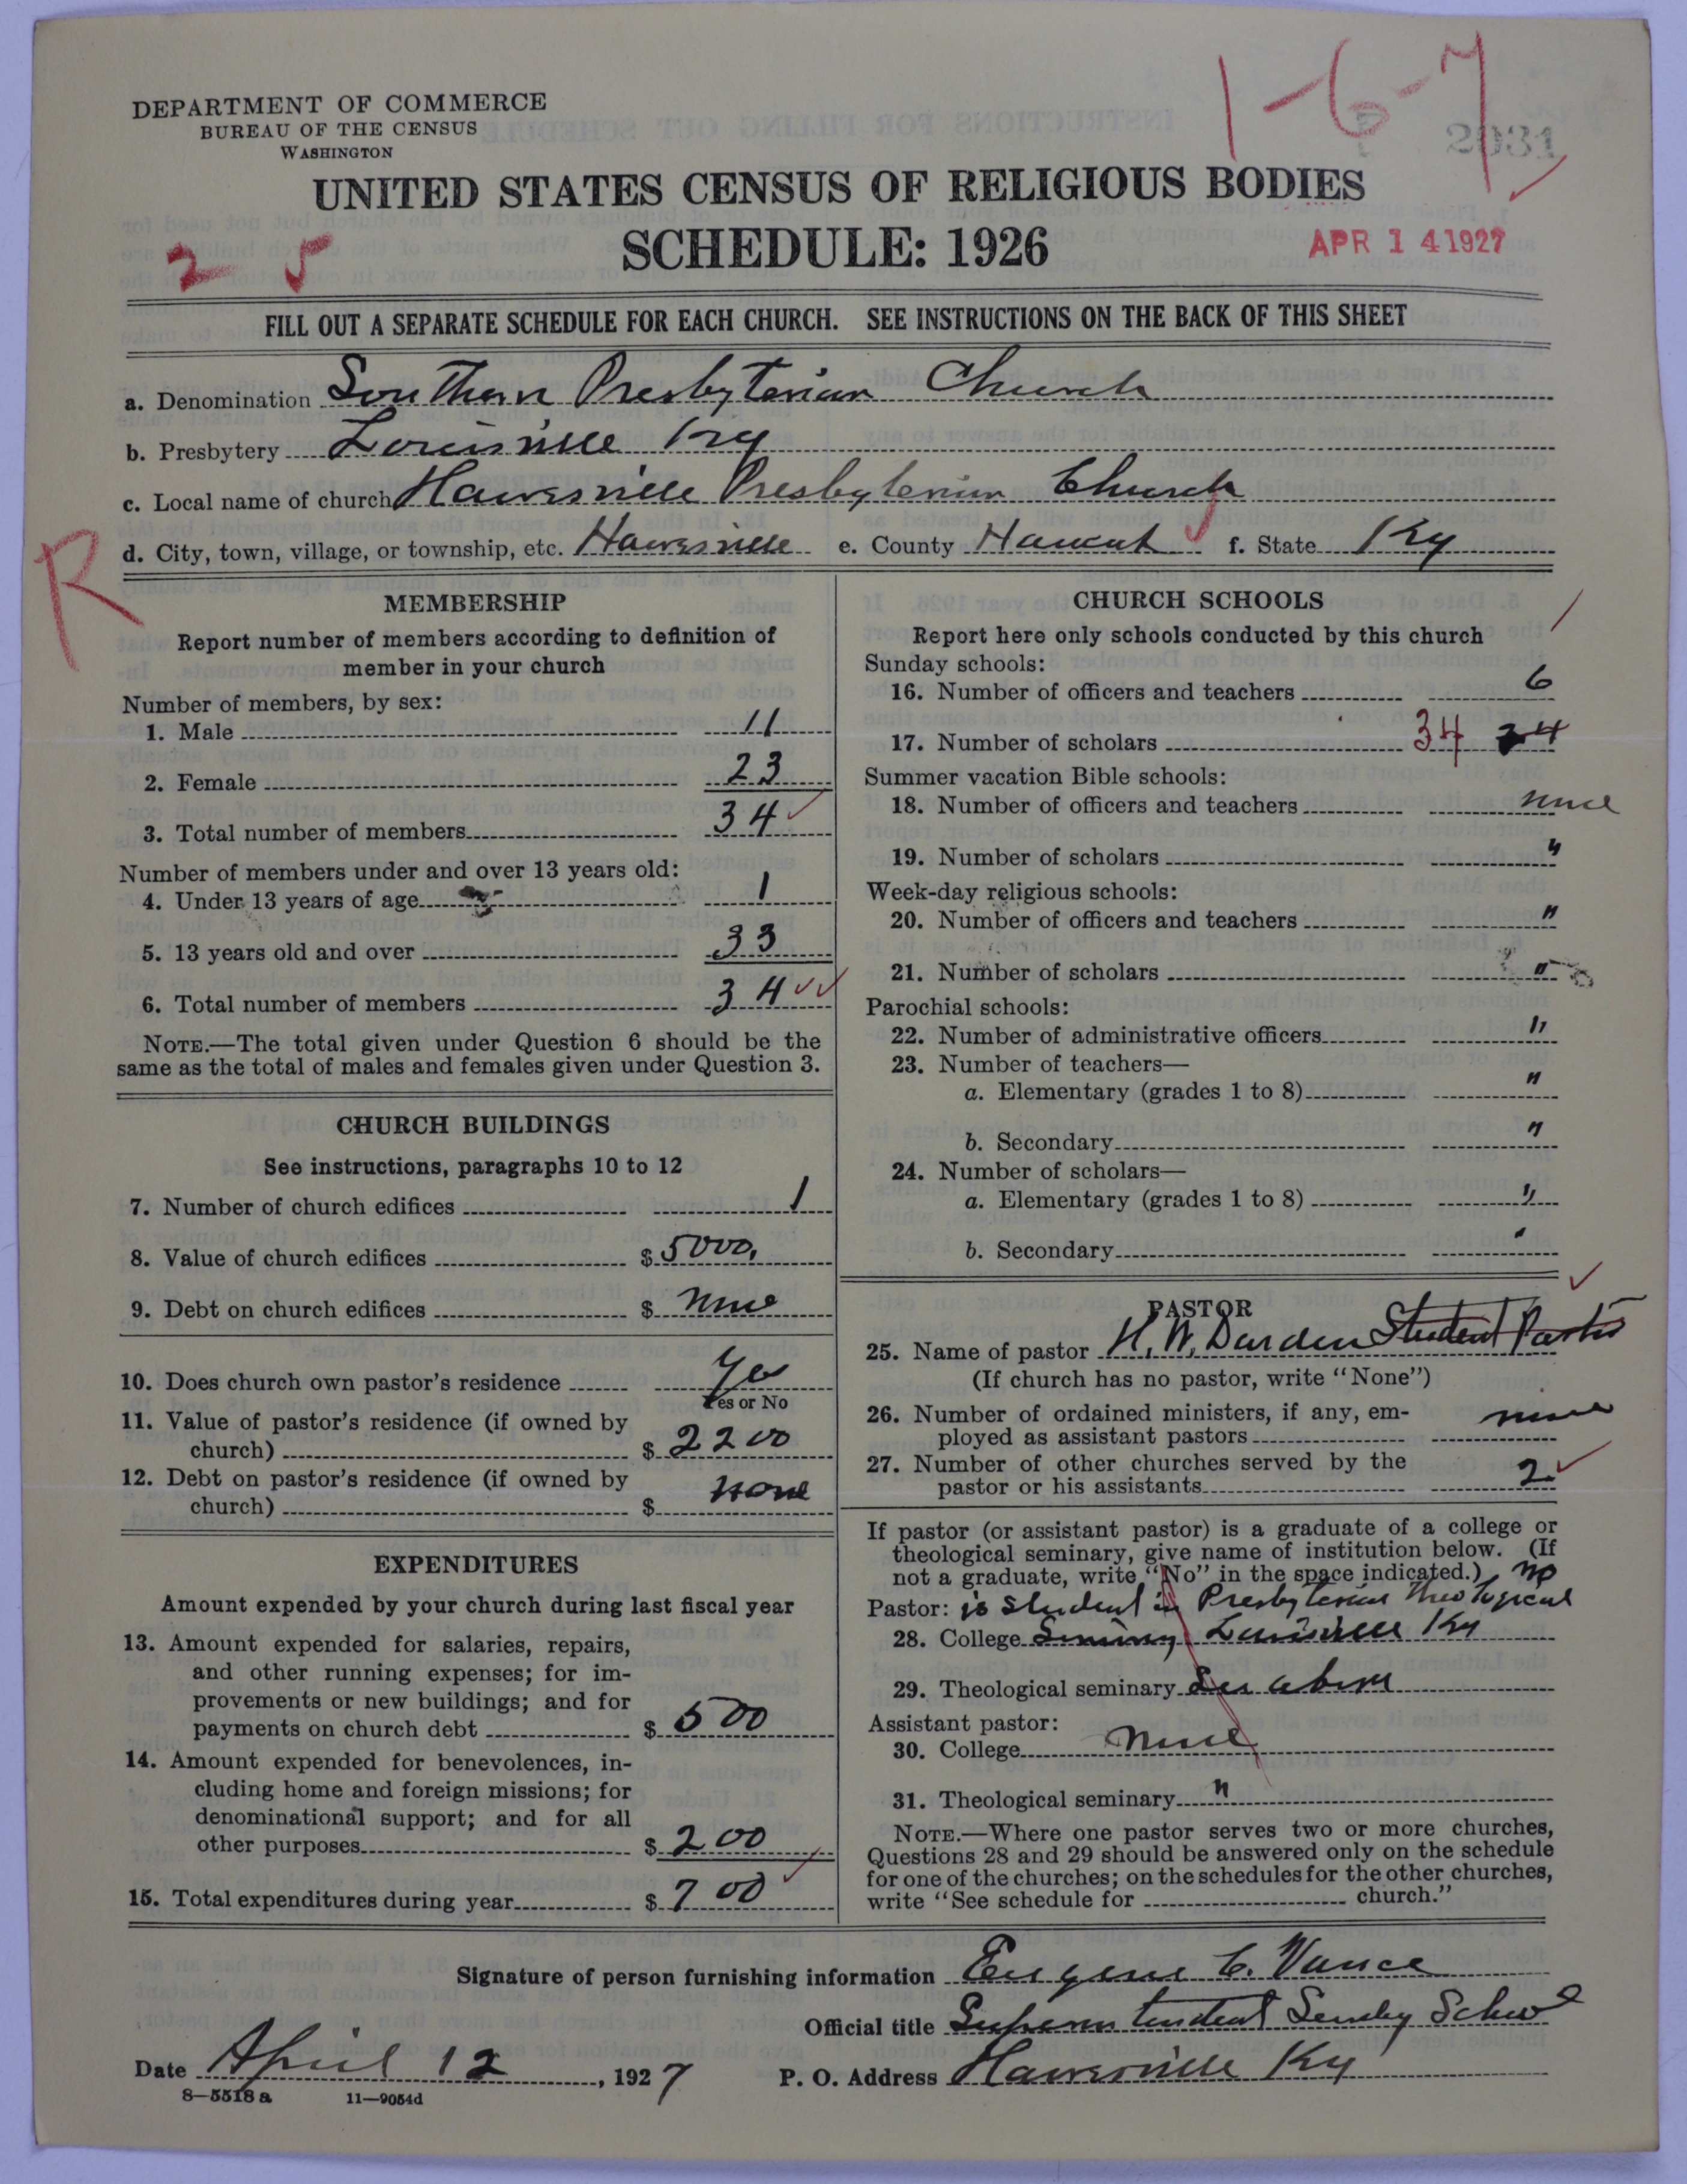 1-6-7
DEPARTMENT OF COMMERCE
BUREAU OF THE CENSUS
WASHINGTON
2931
UNITED STATES CENSUS OF RELIGIOUS BODIES
SCHEDULE: 1926
APR 14 1927
2 5
FILL OUT A SEPARATE SCHEDULE FOR EACH CHURCH. SEE INSTRUCTIONS ON THE BACK OF THIS SHEET
a. Denomination Southern Presbyterian Church
b. Presbytery Louisville Ky
c. Local name of church Hawesville Presbyterian Church
d. City, town, village, or township, etc. Hawesville e. County Hancock f. State Ky
R
MEMBERSHIP
Report number of members according to definition of
member in your church
Number of members, by sex:
1. Male 11
2. Female 23
3. Total number of members 34
Number of members under and over 13 years old:
4. Under 13 years of age 1
5. 13 years old and over 33
6. Total number of members 34
NOTE.—The total given under Question 6 should be the
same as the total of males and females given under Question 3.
CHURCH BUILDINGS
See instructions, paragraphs 10 to 12
7. Number of church edifices 1
8. Value of church edifices $ 5000.
9. Debt on church edifices $ none
10. Does church own pastor's residence Yes
Yes or No
11. Value of pastor's residence (if owned by
church) $ 2200
12. Debt on pastor's residence (if owned by
church) $ none
EXPENDITURES
Amount expended by your church during last fiscal year
13. Amount expended for salaries, repairs,
and other running expenses; for im-
provements or new buildings; and for
payments on church debt $ 500
14. Amount expended for benevolences, in-
cluding home and foreign missions; for
denominational support; and for all
other purposes $ 200
15. Total expenditures during year $ 700
CHURCH SCHOOLS
Report here only schools conducted by this church
Sunday schools:
16. Number of officers and teachers 6
17. Number of scholars 34 34
Summer vacation Bible schools:
18. Number of officers and teachers none
19. Number of scholars "
Week-day religious schools:
20. Number of officers and teachers "
21. Number of scholars "
Parochial schools:
22. Number of administrative officers "
23. Number of teachers—
a. Elementary (grades 1 to 8) "
b. Secondary "
24. Number of scholars—
a. Elementary (grades 1 to 8) "
b. Secondary "
PASTOR
25. Name of pastor H. W. Darden Student Pastor
(If church has no pastor, write "None")
26. Number of ordained ministers, if any, em-
ployed as assistant pastors none
27. Number of other churches served by the
pastor or his assistants 2
If pastor (or assistant pastor) is a graduate of a college or
theological seminary, give name of institution below. (If
not a graduate, write "No" in the space indicated.) no
Pastor: is student in Presbyterian Theological
28. College Seminary Louisville Ky
29. Theological seminary See above
Assistant pastor:
30. College none
31. Theological seminary "
NOTE.—Where one pastor serves two or more churches,
Questions 28 and 29 should be answered only on the schedule
for one of the churches; on the schedules for the other churches,
write "See schedule for church."
Signature of person furnishing information Eugene C. Vance
Official title Superintendent Sunday School
Date April 12, 1927 P. O. Address Hawesville Ky
8—5518 a 11—9054d